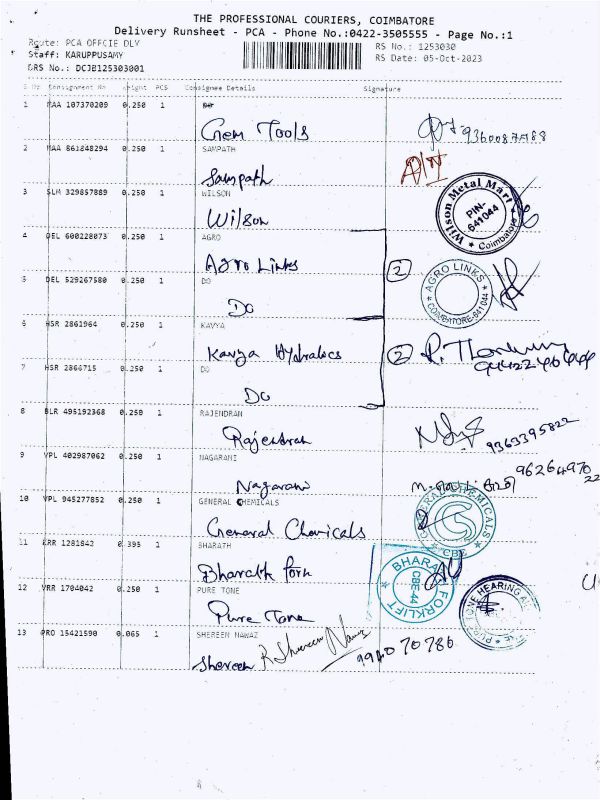 THE PROFESSIONAL COURIERS, COIMBATORE
Delivery Runsheet - PCA - Phone No.:0422-3505555 - Page No.:1
Route: PCA OFFCIE DLY
RS No.: 1253030
Staff: KARUPPUSAMY
RS Date: 05-Oct-2023
DRS No.: DCJB125303001
Consignment No
PCS
Consignee Details
Signature
1 MAA 107370209 0.250 1
Gem Tools
2 MAA 861848294 0.250 1 SAMPATH
Sampath
3 SLM 329857889 0.250 1 WILSON
Wilson
Wilson Metal Mart
PIN-641044
Coimbatore
4 DEL 600228073 0.250 1 AGRO
Agro Links
2
AGRO LINKS
COIMBATORE-641044
5 DEL 529267580 0.250 1 DO
Do
6 HSR 2861964 0.250 1 KAVYA
Kavya Hydralics
2
7 HSR 2866715 0.250 1 DO
Do
8 BLR 495192368 0.250 1 RAJENDRAN
Rajendran
9363395822
9 VPL 402987062 0.250 1 NAGARANI
Nagarani
10 VPL 945277852 0.250 1 GENERAL CHEMICALS
General Chemicals
GENERAL CHEMICALS
CBE
11 KRR 1281842 0.395 1 BHARATH
Bharath Fork
BHARAT FORKLIFT
CBE-44
12 VRR 1704042 0.250 1 PURE TONE
Pure Tone
PURE TONE HEARING
13 PRO 15421590 0.065 1 SHEREEN NAWAZ
Shereen
R. Shereen Nawaz